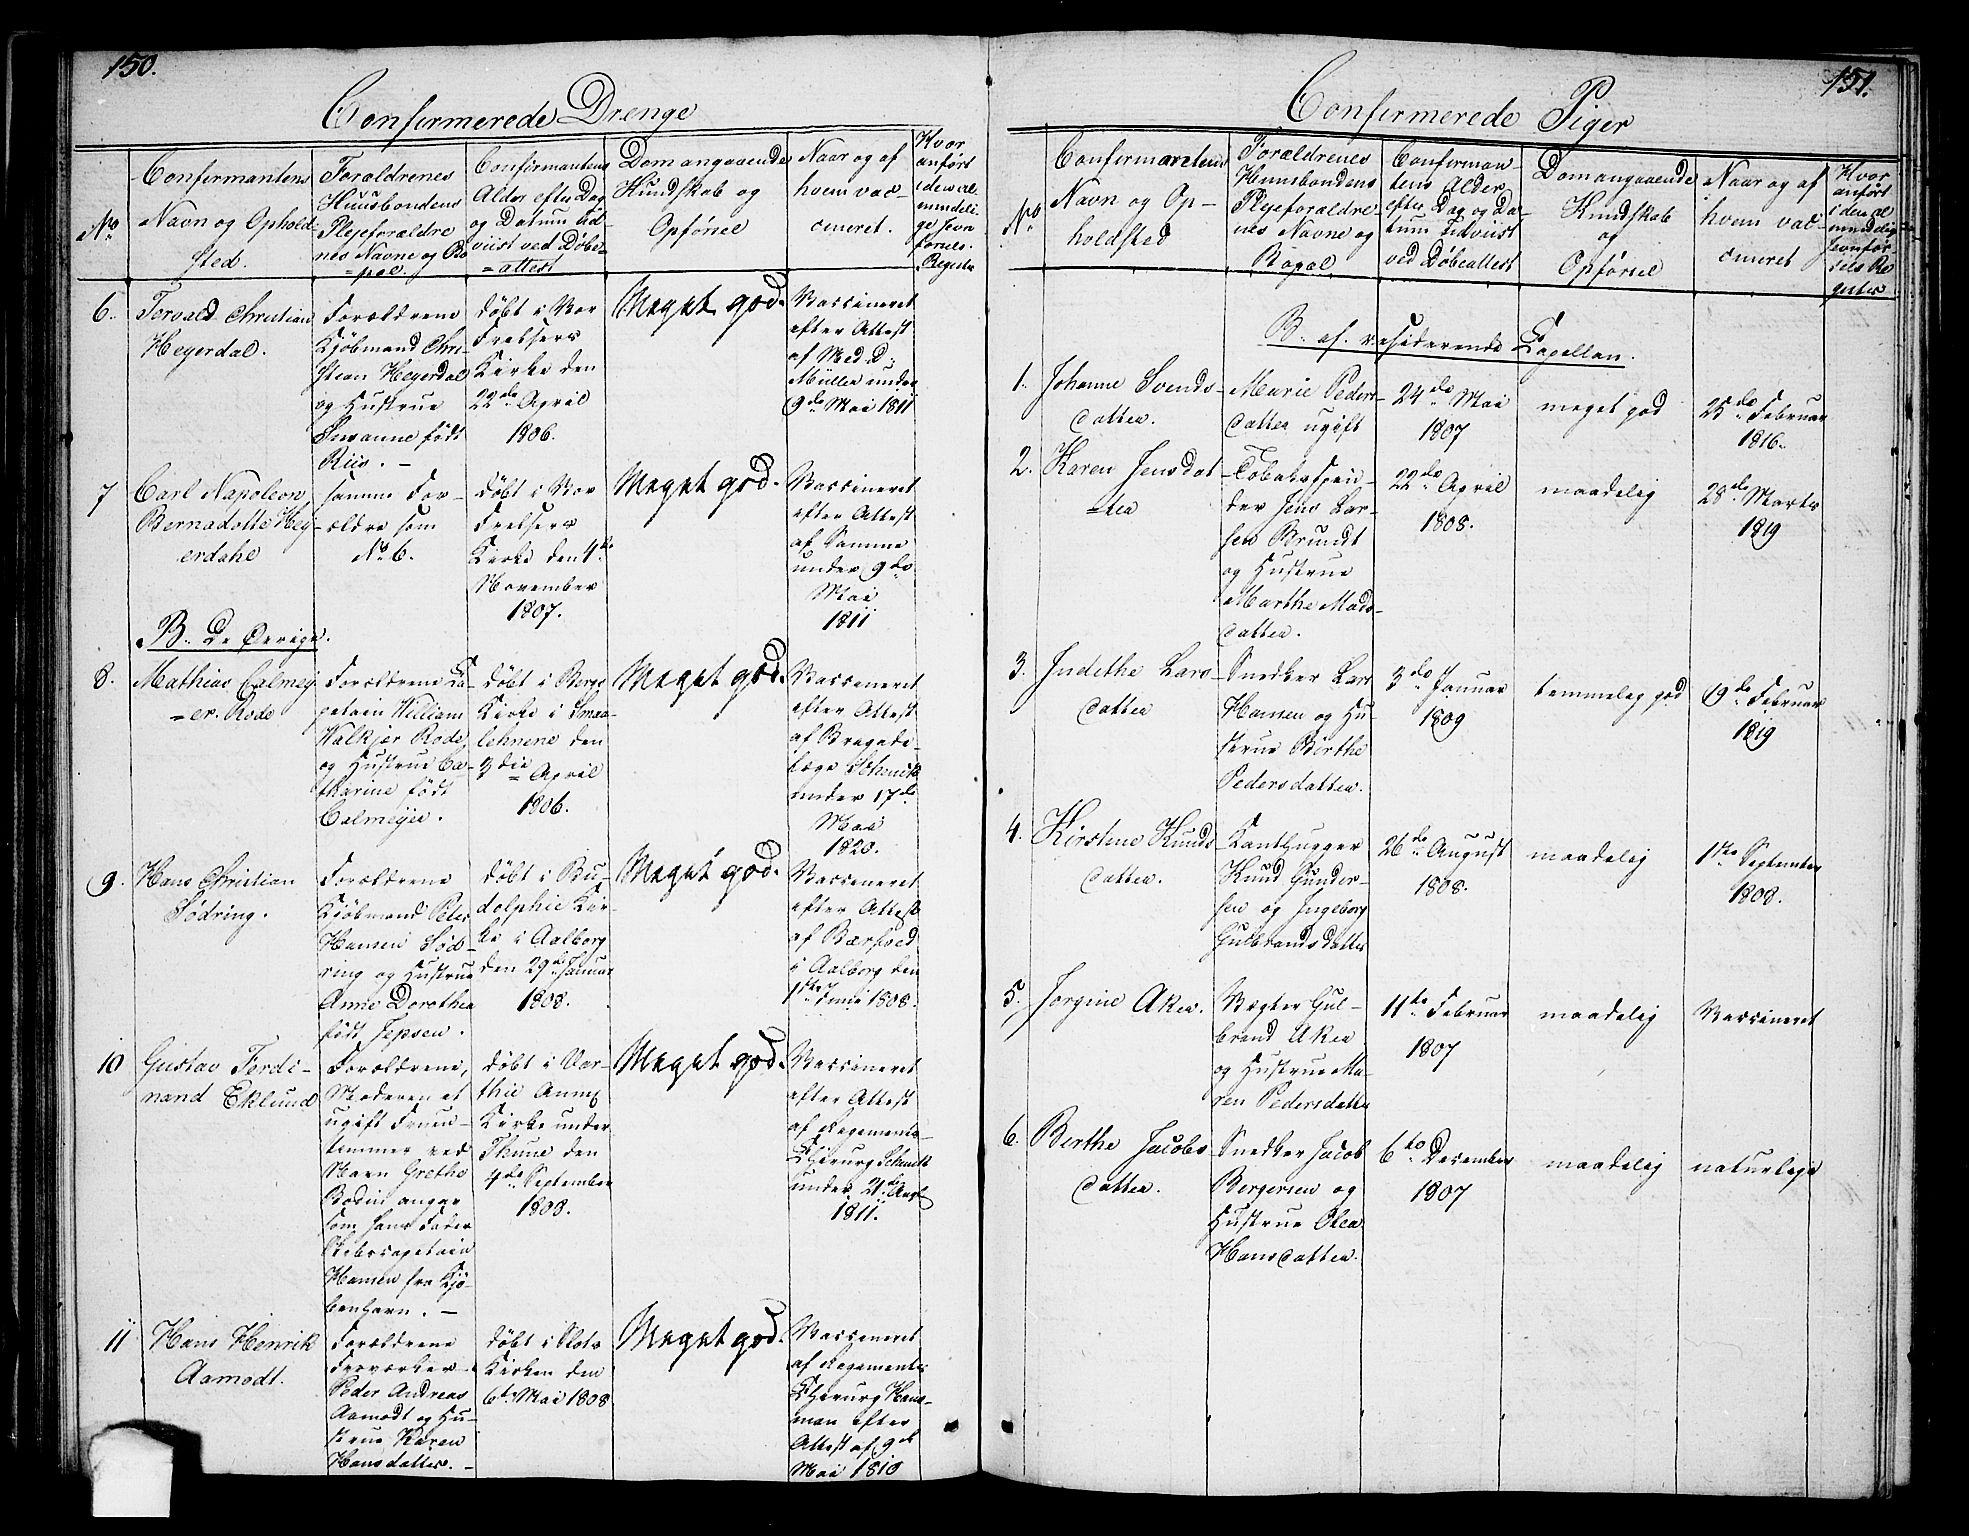 150.
Confirmerede Drenge
No
Confirmantens
Navn og Ophold-
sted.
Forældrenes
Huusbondens
Plejeforældre
nes Navne og Bo
=pæl.
Confirmantens
Alder efter Dag
og Datum Ud-
viist ved Døbe-
=attest
Dom angaaende
Kundskab og
Opførsel
Naar og af
hvem vac-
cineret.
Hvor
anført
i den al
mindeli-
ge Jevn
førsels-
Register
6.
Tervald Christian
Heyerdal.
Forældrene
Kjøbmand Chri-
stian Heyerdal
og Hustrue
Susanne født
Riis. -
døbt i Vor
Frelsers
Kirke den
22de April
1806.
Meget god.
Vaccineret
efter Attest
af Med. D.
Müller under
9de Mai 1811
7
Carl Napoleon
Bernadotte Hey-
erdahl
samme For-
ældre som
No 6.
døbt i Vor
Frelsers
Kirke den 4de
November
1807.
Meget god.
Vaccineret
efter Attest
af Samme
under 9de
Mai
1811
B. De Øvrige.
8.
Mathias Calmey-
=er Rode
Forældrene Ca-
pitain William
Walkjer Rode,
og Hustrue Ca-
tharine født
Calmeyer.
døbt i Bergs
Kirke i Smaa-
lehnene den
3die April
1806.
Meget god.
Vaccineret
efter Attest
af Brigade-
Læge Schenck
under 17de
Mai
1820.
9.
Hans Christian
Sødring.
Forældrene
Kjøbmand Peter
Hansen Sød-
ring og Hustrue
Anne Dorothea
født Jepsen.
døbt i Bu-
dolphie Kir-
ke i Aalborg
den 29de Januar
1808.
Meget god.
Vaccineret
efter Attest
af Bærfoed
i Aalborg den
1ste Juni 1808.
10
Gustav Ferdi-
nand Eklund
Forældrene,
Moderen et
ugift Fruen-
timmer ved
Navn Grethe
Bodin angav
som hans Fader
Stabscapitain
Hansen fra Kjö-
benhavn. -
døbt i Vor-
the Annex
Kirke under
Thune den
4de September
1808.
Meget god.
Vaccineret
efter Attest
af Regiments-
Chirurg Schenck
under 21de Augt
1811.
11
Hans Henrik
Aamodt.
Forældrene
Fyrværker
Peder Andreas
Aamodt og Hu-
strue Karen
Hansdatter. -
døbt i Slots
Kirken den
6te Mai 1808
Meget god.
Vaccineret
af Regiments
Chirurg Hans-
man efter
Attest af 9de
Mai 1810
151.
Confirmerede Piger
No
Confirmantens
Navn og Op-
holdsted
Forældrenes
Huusbondens
Plejeforældre-
nes Navne og
Bopæl
Confirman-
tens Alder
efter Dag og Da-
tum udviist
ved Døbeattest
Dom angaaende
Kundskab
og
Opførsel
Naar og af
hvem vac-
cineret
Hvor
anført
i den al
mindelig
Jevnfør
sels Re
gister
B. af residerende Capellan.
1.
Johanne Svends-
datter.
Marie Peders-
datter ugift
24de Mai
1807
meget god
25de Februar
1816.
2.
Karen Jensdat-
=ter
Tobakspin-
der Jens Lar-
sen Brundt
og Hustrue
Marthe Mads-
datter.
22de April
1808.
maadelig
28de Marts
1819
3.
Indethe Lars-
datter
Snedker Lars
Hansen og Hu-
strue Birthe
Pedersdatter.
3de Januar
1809
temmelig god
19de Februar
1819
4.
Kirstine Knuds
datter.
Kanthugger
Knud Gunder-
sen og Ingeborg
Gulbrandsdatter
26de August
1808.
maadelig
1ste September
1808.
5.
Jorgine Aker.
Vægter Gul-
brand Aker
og Hustrue Ma-
ren Pedersdatter
11te Februar
1807
maadelig
Vaccineret
6.
Berthe Jacobs
datter.
Snedker Jacob
Bergersen og
Hustrue Olea
Hansdatter.
6te December
1807
maadelig
naturlige